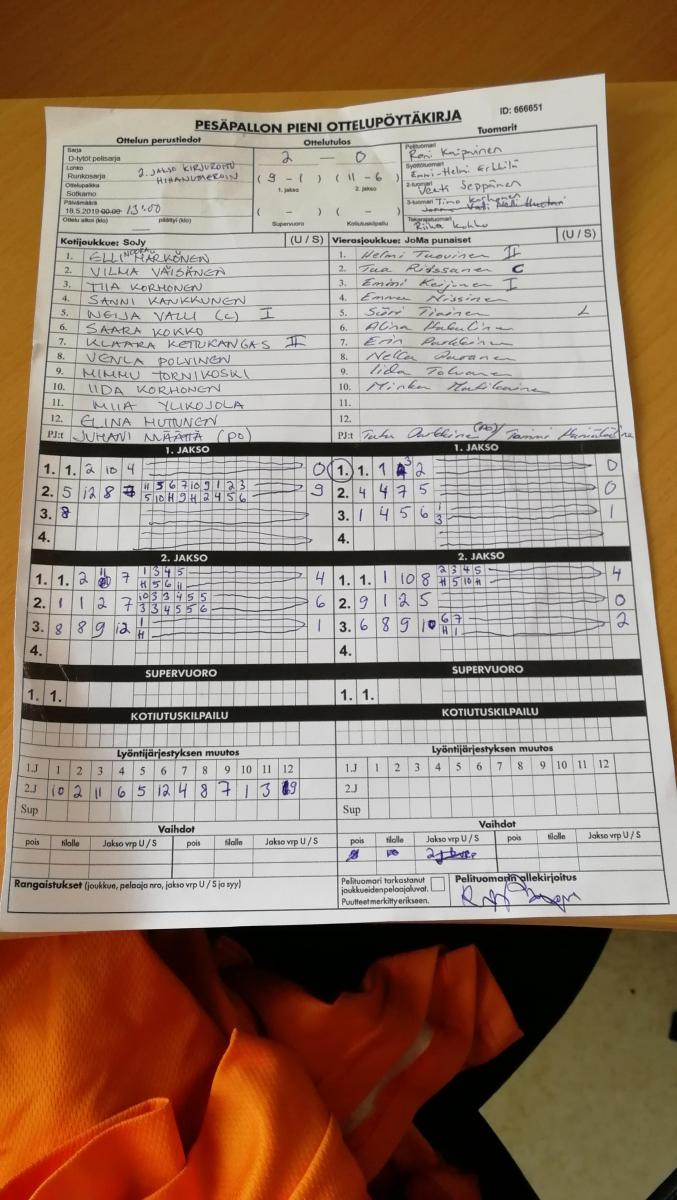 PESÄPALLON PIENI OTTELUPÖYTÄKIRJA ID: 666651
Ottelun perustiedot Ottelutulos Tuomarit
Sarja
D-tytöt pelisarja 2 — 0
Lohko
Runkosarja 2. JAKSO KIRJUROITU HIHANUMEROIN
( 9 - 1 ) ( 11 - 6 )
1. jakso 2. jakso
Ottelupaikka
Sotkamo
Päivämäärä
18.5.2019 00:00 13:00
( - ) ( - )
Ottelu alkoi (klo) päättyi (klo) Supervuoro Kotiutuskilpailu
Pelituomari
Syöttötuomari
2-tuomari Seppänen
3-tuomari Timo Korhonen
Takarajatuomari
Riikka Kokko
Kotijoukkue: SoJy (U / S) Vierasjoukkue: JoMa punaiset (U / S)
1. ELLI NOORA HÄRKÖNEN 1. Helmi Tuovinen II
2. VILMA VÄISÄNEN 2. Tua Rissanen C
3. TIIA KORHONEN 3. Emmi Keijonen I
4. SANNI KANKKUNEN 4. Emma Nissinen
5. NEIJA VALLI (c) I 5. Siiri Tiainen L
6. SAARA KOKKO 6. Alina
7. KLAARA KETUKANGAS II 7. Erin Parkkinen
8. VENLA POLVINEN 8. Nella
9. MIMMU TORNIKOSKI 9. Iida Tolvanen
10. IIDA KORHONEN 10. Minka
11. MIIA YLIKOJOLA 11.
12. ELINA HUTUNEN 12.
PJ:t JUHANI MÄÄTTÄ (PO) PJ:t (PO) Tommi
1. JAKSO 1. JAKSO
1. 1. 2 10 4 0 1. 1. 1 3 2 0
2. 5 12 8 11 5 6 7 10 9 1 2 3 9 2. 4 4 7 5 0
5 10 H 9 H 2 4 5 6
3. 8 3. 1 4 5 6 1 1
3
4. 4.
2. JAKSO 2. JAKSO
1. 1. 2 11 7 1 3 4 5 4 1. 1. 1 10 8 2 3 4 5 4
H 5 6 11 H 5 10 H
2. 1 1 2 7 10 3 3 4 5 5 6 2. 9 1 2 5 0
3 3 4 5 5 6
3. 8 8 9 12 1 1 3. 6 8 9 10 6 7 2
H H 1
4. 4.
SUPERVUORO SUPERVUORO
1. 1. 1. 1.
KOTIUTUSKILPAILU KOTIUTUSKILPAILU
Lyöntijärjestyksen muutos Lyöntijärjestyksen muutos
1.J 1 2 3 4 5 6 7 8 9 10 11 12 1.J 1 2 3 4 5 6 7 8 9 10 11 12
2.J 10 2 11 6 5 12 4 8 7 1 3 9 2.J
Sup Sup
Vaihdot Vaihdot
pois tilalle Jakso vrp U / S pois tilalle Jakso vrp U / S pois tilalle Jakso vrp U / S pois tilalle Jakso vrp U / S
Rangaistukset (joukkue, pelaaja nro, jakso vrp U / S ja syy)
Pelituomari tarkastanut joukkueidenpelaajaluvat.
Puutteet merkitty erikseen.
Pelituomarin allekirjoitus